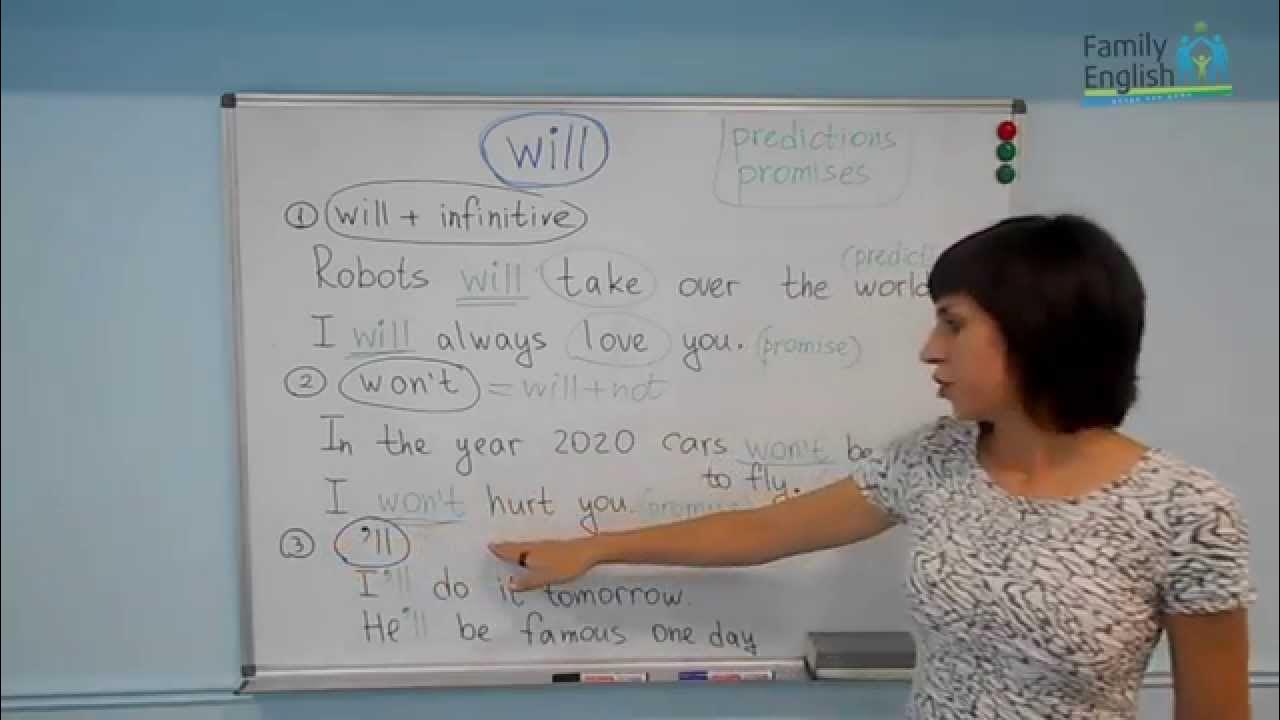 Family
English
will
predictions
promises
① will + infinitive
(predicti
Robots will take over the world
I will always love you. (promise)
② won't = will + not
In the year 2020 cars won't be
to fly.
I won't hurt you. (promis
③ 'll
I'll do it tomorrow.
He'll be famous one day